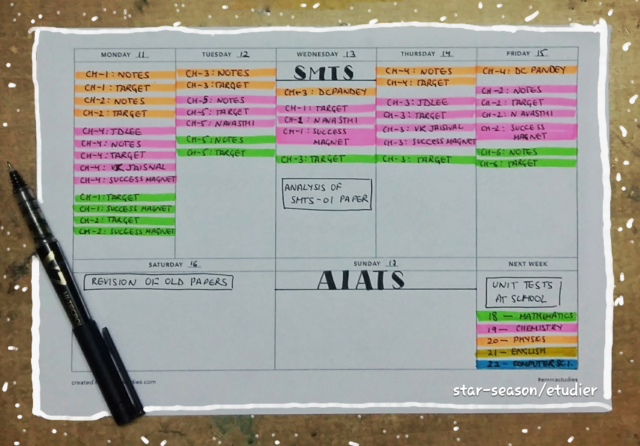 MONDAY 11
CH-1: NOTES
CH-1: TARGET
CH-2: NOTES
CH-2: TARGET
CH-4: JDLEE
CH-4: NOTES
CH-4: TARGET
CH-4: VK JAISWAL
CH-4: SUCCESS MAGNET
CH-1: TARGET
CH-1: SUCCESS MAGNET
CH-2: TARGET
CH-2: SUCCESS MAGNET
TUESDAY 12
CH-3: NOTES
CH-3: TARGET
CH-5: NOTES
CH-5: TARGET
CH-5: N AVASTHI
CH-5: NOTES
CH-5: TARGET
WEDNESDAY 13
SMTS
CH-3: DC PANDEY
CH-1: TARGET
CH-1: N AVASTHI
CH-1: SUCCESS
MAGNET
CH-3: TARGET
ANALYSIS OF
SMTS-01 PAPER
THURSDAY 14
CH-4: NOTES
CH-4: TARGET
CH-3: JDLEE
CH-3: TARGET
CH-3: VK JAISWAL
CH-3: SUCCESS MAGNET
CH-3: TARGET
FRIDAY 15
CH-4: DC PANDEY
CH-2: NOTES
CH-2: TARGET
CH-2: N AVASTHI
CH-2: SUCCESS
MAGNET
CH-6: NOTES
CH-6: TARGET
SATURDAY 16
REVISION OF OLD PAPERS
SUNDAY 17
AIATS
NEXT WEEK
UNIT TESTS
AT SCHOOL
18 — MATHEMATICS
19 — CHEMISTRY
20 — PHYSICS
21 — ENGLISH
22 — COMPUTER SCI.
created
studies.com
#emmastudies
star-season/etudier